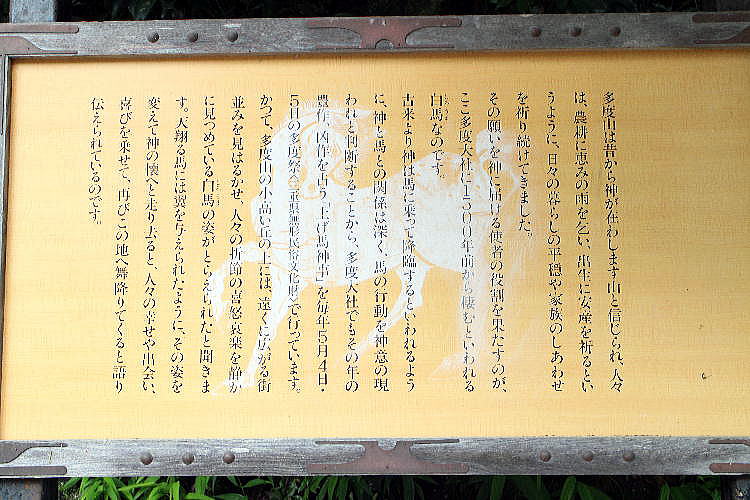 多度山は昔から神が在わします山と信じられ、人々
は、農耕に恵みの雨を乞い、出生に安産を祈るとい
うように、日々の暮らしの平穏や家族のしあわせ
を祈り続けてきました。
その願いを神に届ける使者の役割を果たすのが、
ここ多度大社に1500年前から棲むといわれる
白馬なのです。
古来より神は馬に乗って降臨するといわれるよう
に、神と馬との関係は深く、馬の行動を神意の現
われと判断することから、多度大社でもその年の
豊作、凶作を占う「上げ馬神事」を毎年5月4日・
5日の多度祭〈三重県無形民俗文化財〉で行っています。
かつて、多度山の小高い丘の上には、遠くに広がる街
並みを見はるかせ、人々の折節の喜怒哀楽を静か
に見つめている白馬の姿がとらえられたと聞きま
す。天翔る馬には翼を与えられたように、その姿を
変えて神の懐へと走り去ると、人々の幸せや出会い、
喜びを乗せて、再びこの地へ舞降りてくると語り
伝えられているのです。